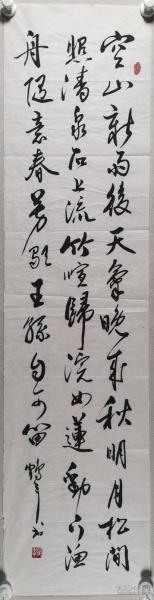 空山新雨後天氣晚來秋明月松間
照清泉石上流竹喧歸浣女蓮動下漁
舟隨意春芳歇王孫自可留 鶴年书